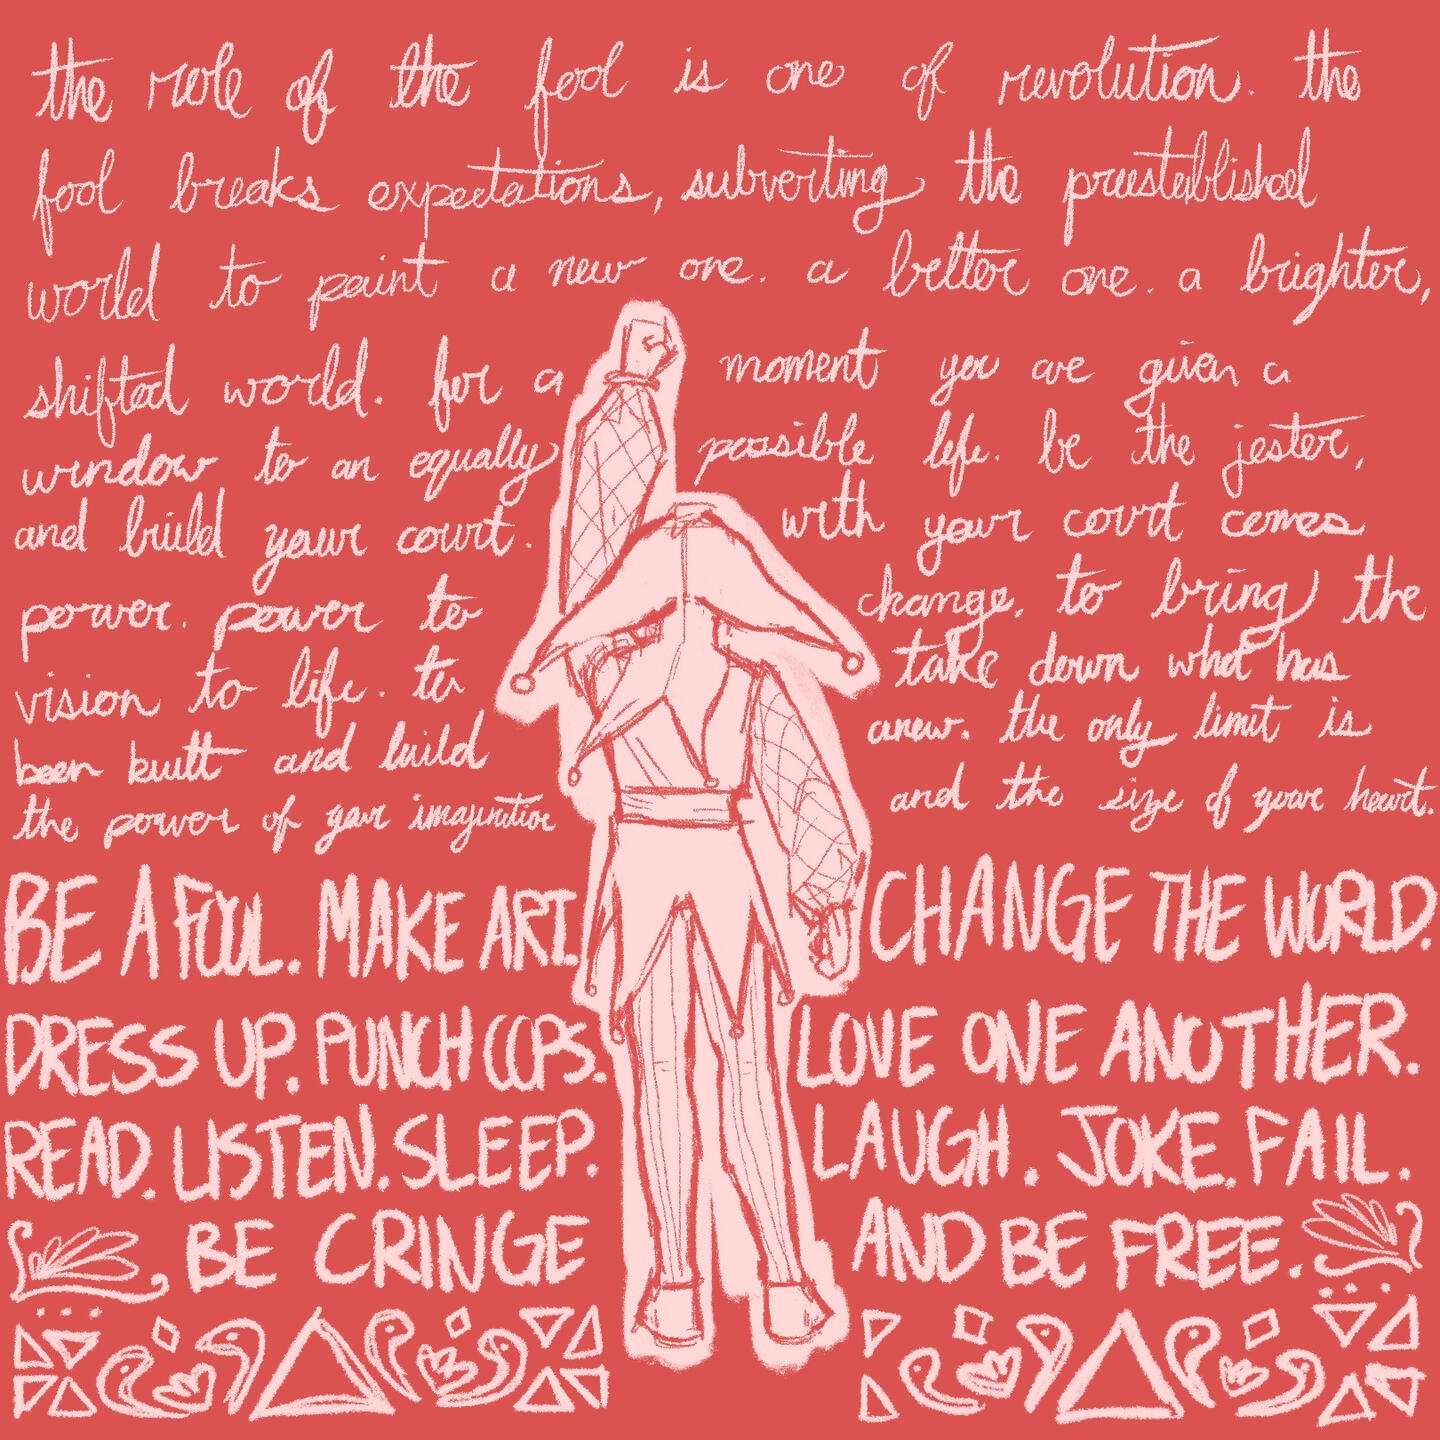 the role of the fool is one of revolution. the
fool breaks expectations, subverting the preestablished
world to paint a new one. a better one. a brighter,
shifted world. for a moment you are given a
window to an equally possible life. be the jester,
and build your court. with your court comes
power. power to change, to bring the
vision to life. to take down what has
been built and build anew. the only limit is
the power of your imagination and the size of your heart.
BE A FOOL. MAKE ART. CHANGE THE WORLD.
DRESS UP. PUNCH COPS. LOVE ONE ANOTHER.
READ. LISTEN. SLEEP. LAUGH. JOKE. FAIL.
BE CRINGE AND BE FREE.